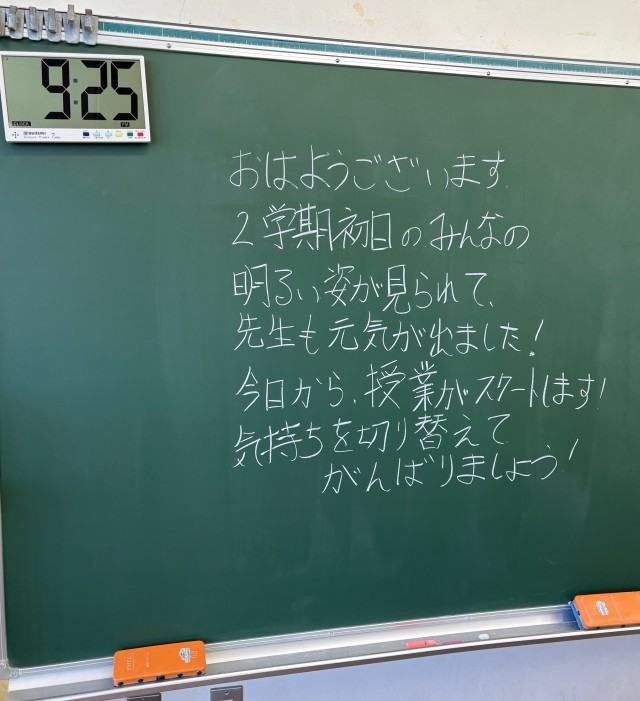 9:25
CLOCK
PM
おはようございます
2学期初日のみんなの
明るい姿が見られて、
先生も元気が出ました!
今日から、授業がスタートします!
気持ちを切り替えて
がんばりましょう!